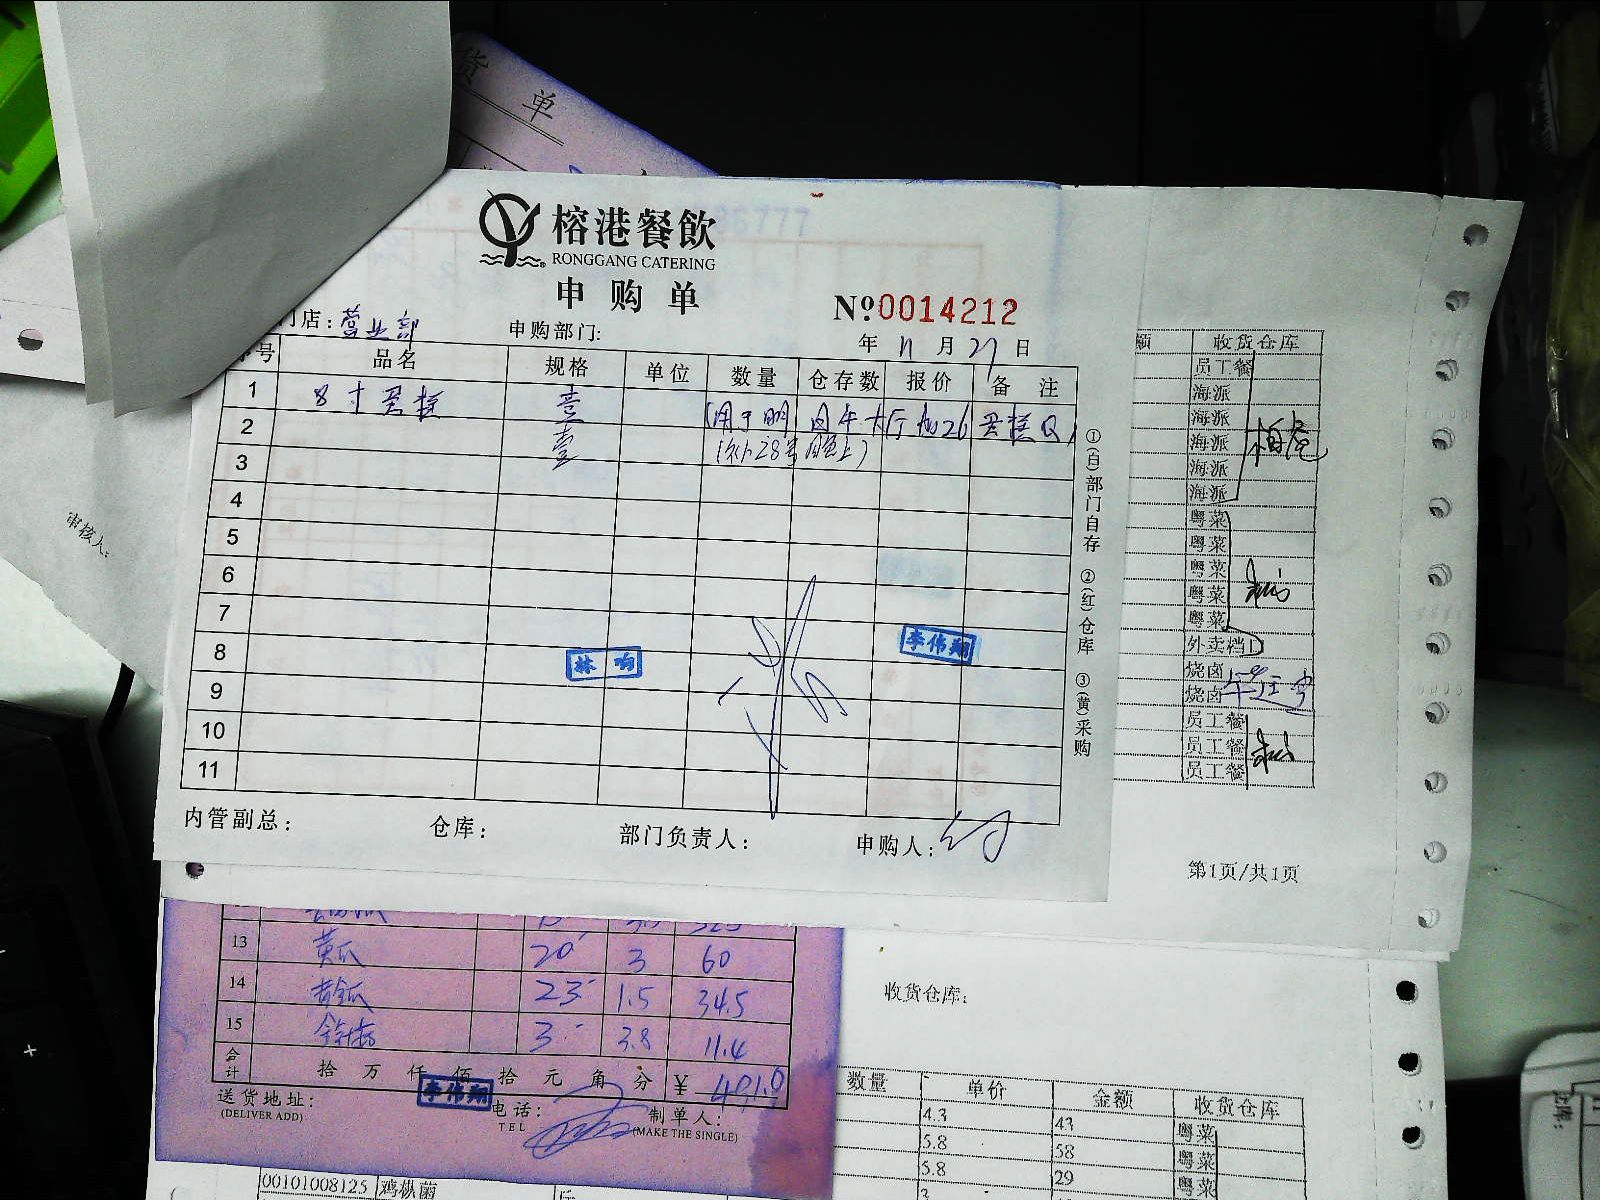 货单
榕港餐飲
RONGGANG CATERING
申购单
№0014212
门店:营业部 申购部门: 年 11 月 27 日
序号 品名 规格 单位 数量 仓存数 报价 备 注
1 8寸蛋糕 壹
2 壹
3
4
5
6
7
8
9
10
11
林 响
李伟翔
①(白)部门自存 ②(红)仓库 ③(黄)采购
内管副总: 仓库: 部门负责人: 申购人:
审核人:
额 收货仓库
员工餐
海派
海派
海派
海派
海派
粤菜
粤菜
粤菜
粤菜
粤菜
外卖档口
烧卤
烧卤
员工餐
员工餐
员工餐
第1页/共1页
13 黄瓜 20 3 60
14 23 1.5 34.5
15 3 3.8 11.4
合计 拾 万 仟 佰 拾 元 角 分 ¥
李伟翔
送货地址: 电话: 制单人:
(DELIVER ADD) TEL (MAKE THE SINGLE)
收货仓库:
数量 单价 金额 收货仓库
4.3 43 粤菜
5.8 58 粤菜
5.8 29 粤菜
00101008125 鸡枞菌